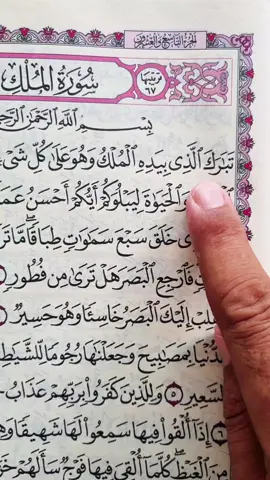 الجزء التاسع والعشرون
سُورَةُ المُلْك
ترتيبها ٦٧
بِسْمِ اللَّهِ الرَّحْمَٰنِ
تَبَارَكَ الَّذِي بِيَدِهِ الْمُلْكُ وَهُوَ عَلَىٰ كُلِّ شَيْءٍ
الْحَيَوٰةَ لِيَبْلُوَكُمْ أَيُّكُمْ أَحْسَنُ
خَلَقَ سَبْعَ سَمَوَاتٍ طِبَاقًا مَّا
فَارْجِعِ الْبَصَرَ هَلْ تَرَىٰ مِن فُطُورٍ
إِلَيْكَ الْبَصَرُ خَاسِئًا وَهُوَ حَسِيرٌ
بِمَصَابِيحَ وَجَعَلْنَاهَا رُجُومًا لِّلشَّيَاطِ
السَّعِيرِ ٥ وَلِلَّذِينَ كَفَرُوا بِرَبِّهِمْ عَذَابُ
٦ إِذَا أُلْقُوا فِيهَا سَمِعُوا لَهَا شَهِيقًا
مِنَ الْغَيْظِ كُلَّمَا أُلْقِيَ فِيهَا فَوْجٌ سَأَلَهُمْ